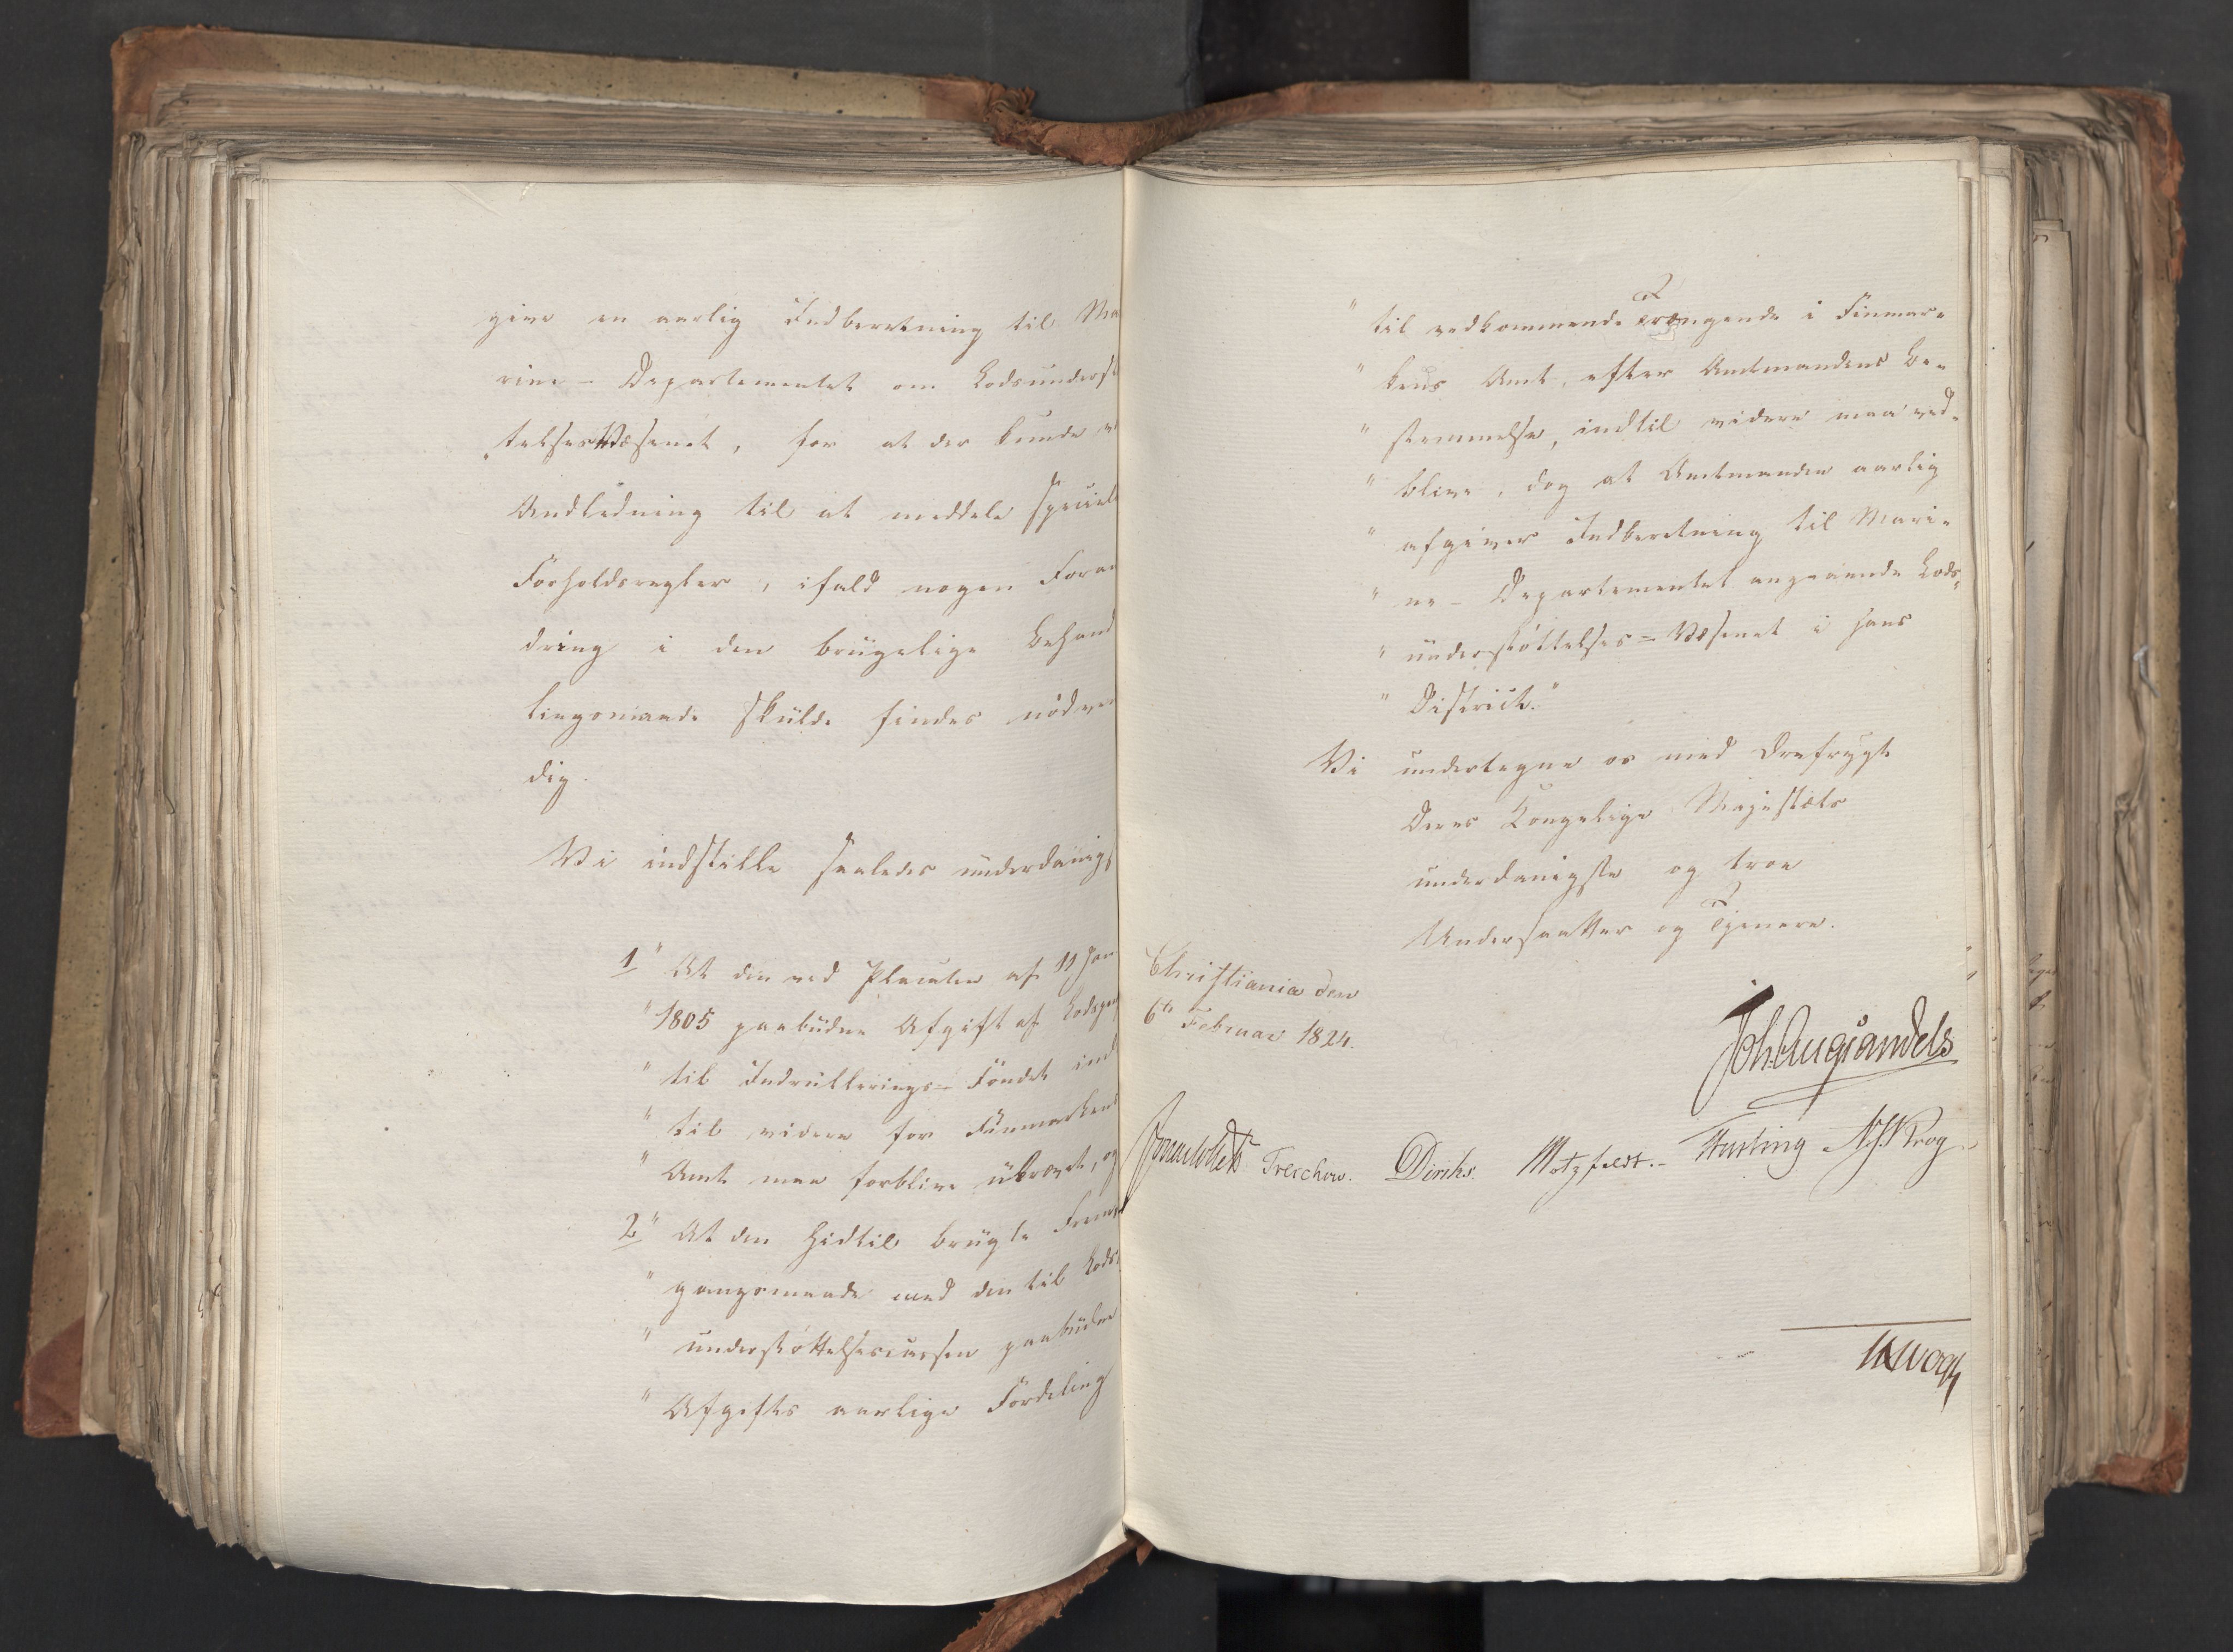 give en aarlig Indberetning til Ma
rine-Departementet om Lodsunderst
telsesVæsenet, for at der kunde
Andledning til at meddele speciel
Forholdsregler, ifald nogen Foran
dring i den brugelige Behand
lingsmaade skulde findes nødven
dig.
Vi indstille saaledes underdanigs
1 " At den ved Placaten af 11 Jan
" 1805 paabudne Afgift af Lodspen
" til Indrullerings-Fondet ind
" til videre for Finmarkens
" Amt maa forblive ukrævet, og
2 " At den hidtil brugte Frem
" gangsmaade med den til Lods
" understøttelsescassen paabudne
" Afgifts aarlige Fordeling
" til vedkommende Trængende i Finmar-
" kens Amt, efter Amtmandens Be-
" stemmelse, indtil videre maa ved-
" blive, dog at Amtmanden aarlig
" afgiver Indberetning til Mari-
" ne-Departementet angaaende Lods-
" understøttelses-Væsenet i hans
" District."
Vi undertegne os med Ærefrygt
Deres Kongelige Majestæts
underdanigste og troe
Undersaatter og Tjenere.
Christiania den
6te Februar 1824.
Joh. Aug. Sandels
Sommerhielm Treschow. Diriks. Motzfeldt.- Fasting J.H. Krog
Vogt